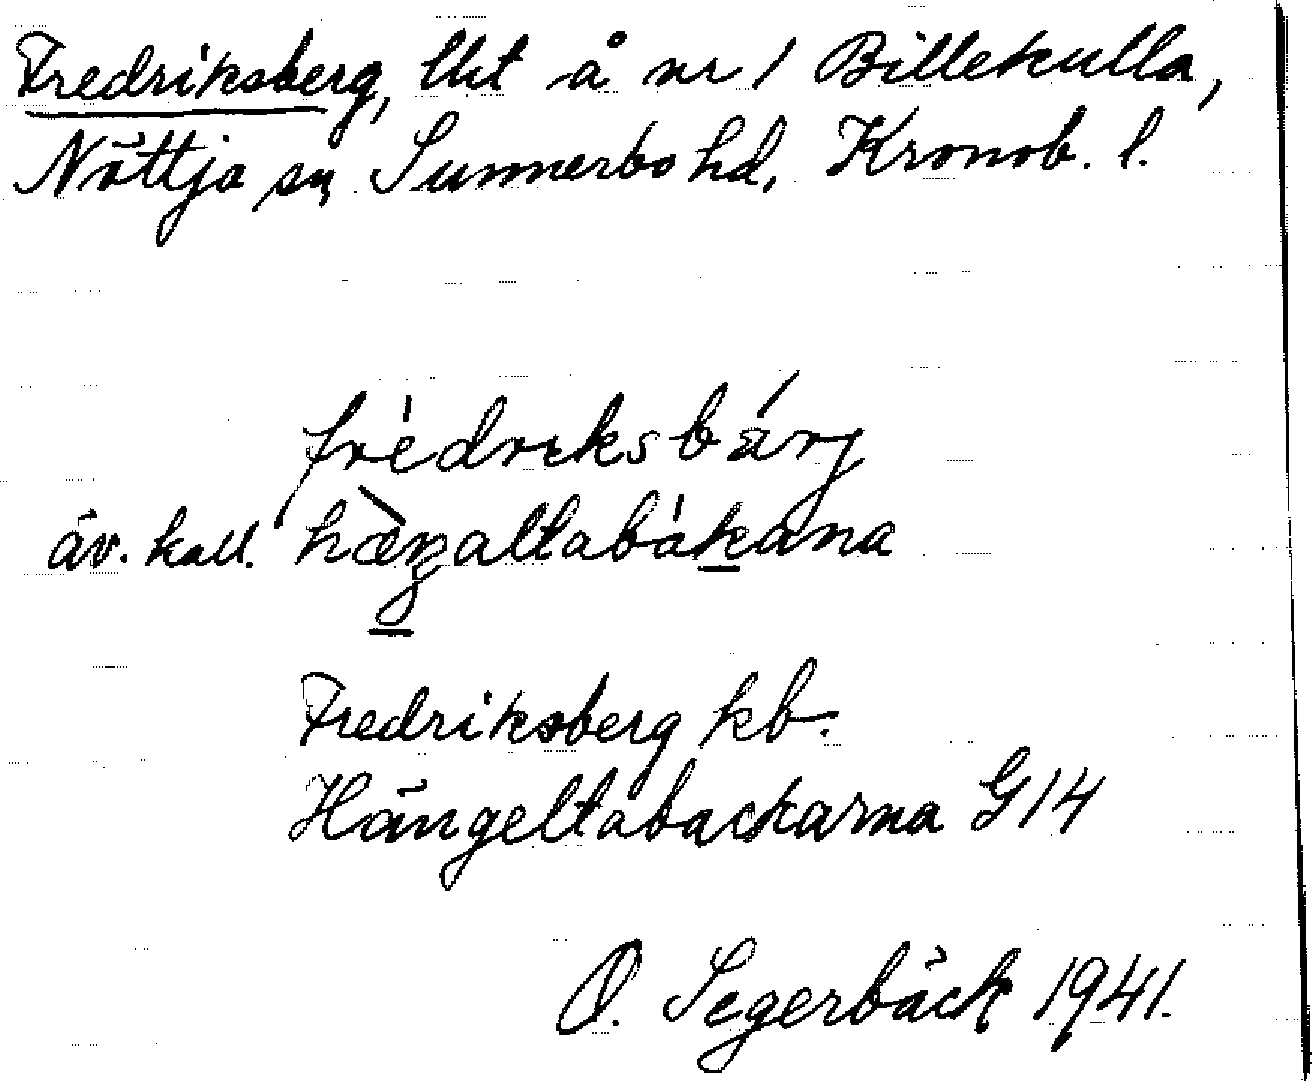 Fredriksberg, lht å nr 1 Billekulla,
Nöttja sn, Sunnerbo hd, Kronob. l.
frèdrıksbárj
äv. kall. hæ̀ŋaltabàkana
Fredriksberg kb.
Hängeltabackarna G14
O. Segerbäck 1941.